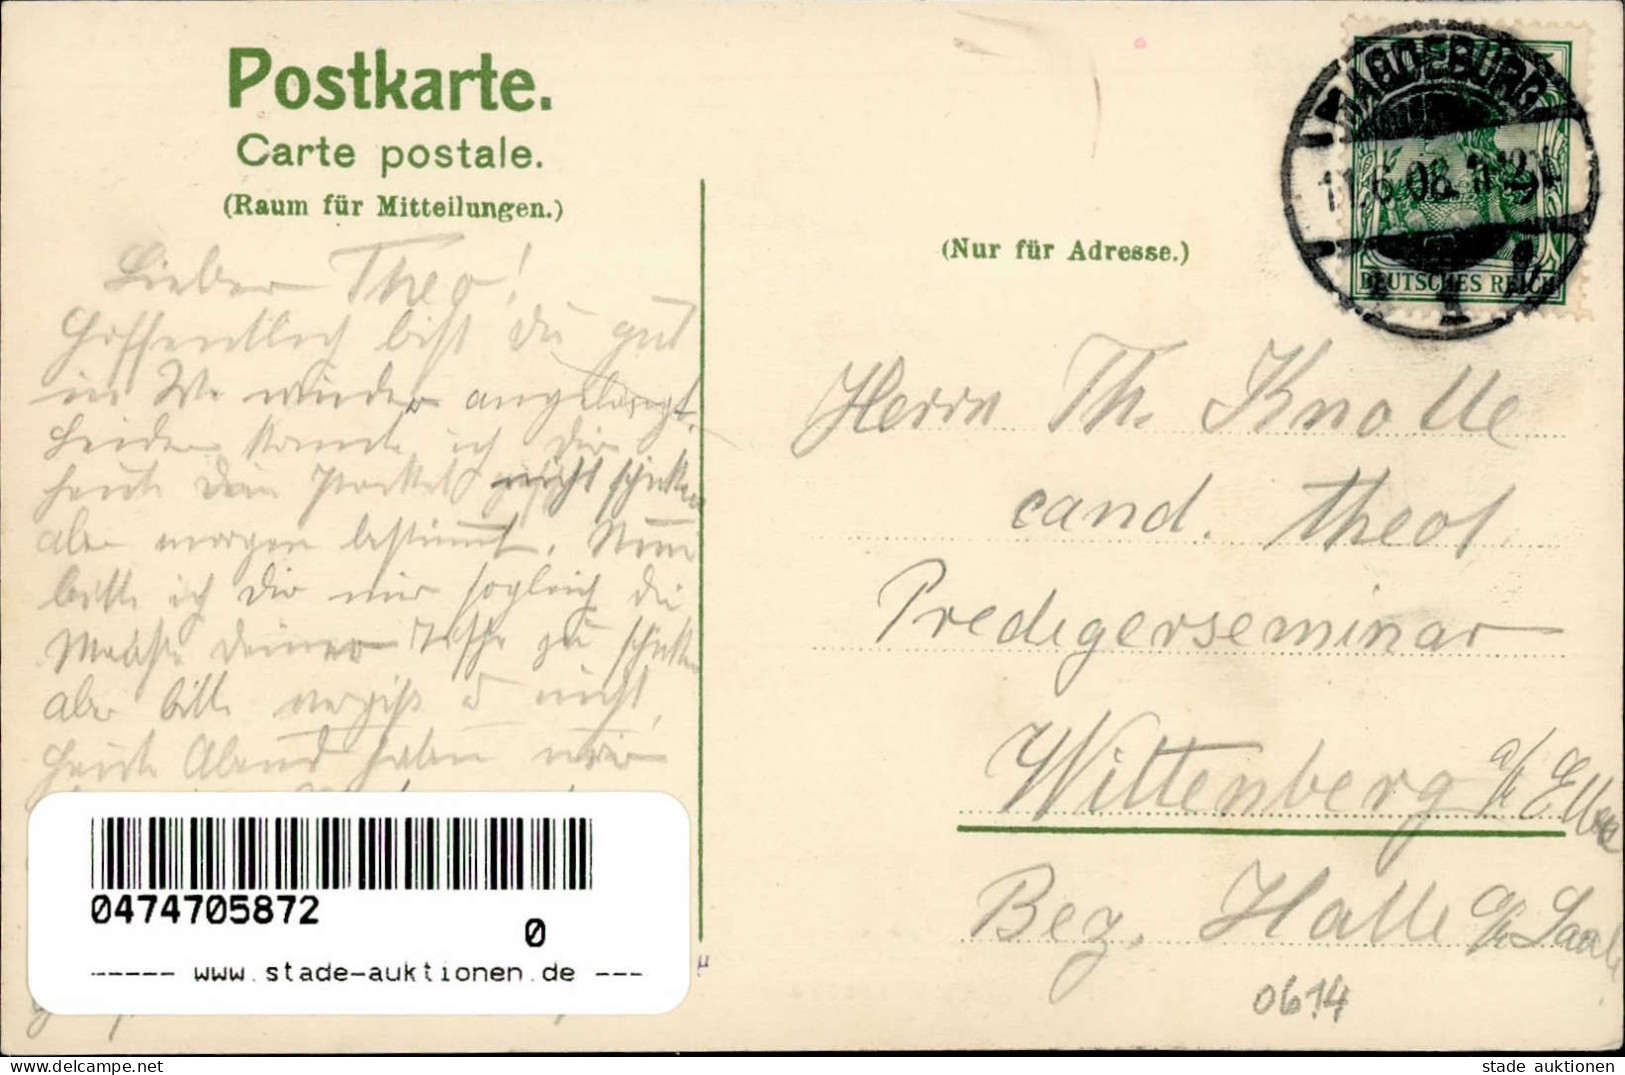 Postkarte.
Carte postale.
(Raum für Mitteilungen.)
Lieber Theo!
Hoffentlich bist Du gut
in We wieder angelangt.
Leider konnte ich Dir
heute Dein Packet nicht schicken
aber morgen bestimmt. Nun
bitte ich Dir mir sogleich die
Maße Deiner Tische zu schicken
aber bitte vergiß es nicht,
heute Abend haben wir
(Nur für Adresse.)
MAGDEBURG
11.6.08.
1
DEUTSCHES REICH
Herrn Th. Knolle
cand. theol.
Predigerseminar
Wittenberg a/ Elbe
Bez. Halle a/ Saale
0614
0474705872
0
----- www.stade-auktionen.de ---
stade auktionen